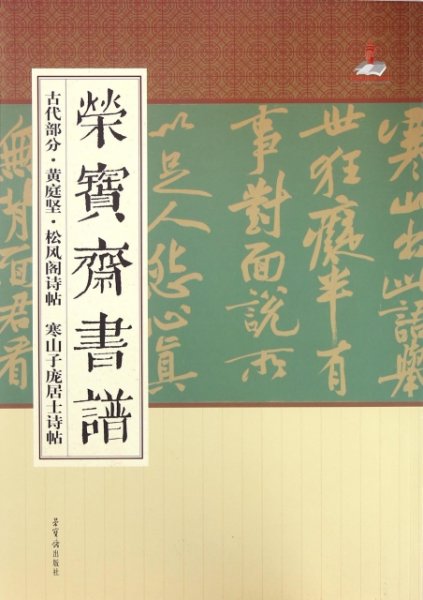 榮寶齋書譜
古代部分·黄庭坚·松风阁诗帖 寒山子庞居士诗帖
寒山出此語舉
世狂癡半有
事對面說所
以足人怨心真
無背面君看
榮寶齋出版社